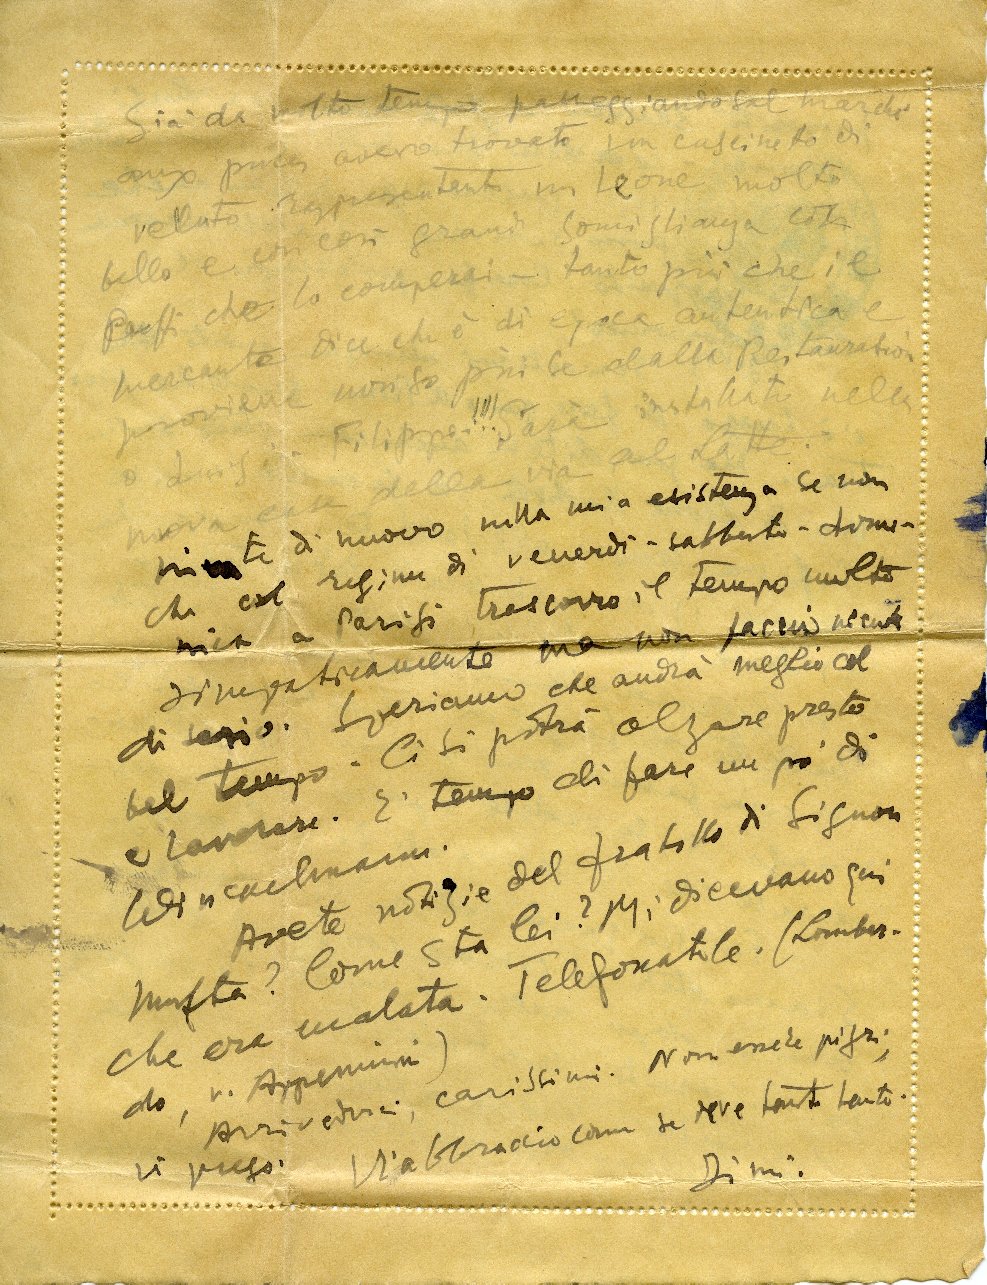 Già da molto tempo passeggiando sul marché
aux puces avevo trovato un cuscinetto di
velluto rappresentante un Leone molto
bello e con così grande somiglianza con
Puffi che lo comperai - tanto più che il
mercante dice ch'è di epoca autentica e
proviene non so più se dalla Restauration
o Luigi - Filippo!!! Sarà installato nella
nuova casa della via al Latte.
niente di nuovo nella mia esistenza se non
che col regime di venerdì - sabbato - dome-
nica a Parigi trascorro il tempo molto
simpaticamente ma non faccio niente
di serio. Speriamo che andrà meglio col
bel tempo - Ci si potrà alzare presto
e lavorare. E' tempo di fare un po' di
Winckelmann.
Avete notizie del fratello di Signor
Mufta? Come sta lei? Mi dicevano qui
che era malata. Telefonatele. (Lombar-
do, v. Appennini)
Arrivederci, carissimi. Non essere pigri,
vi prego. Vi abbraccio come si deve tanto tanto.
Dimi.